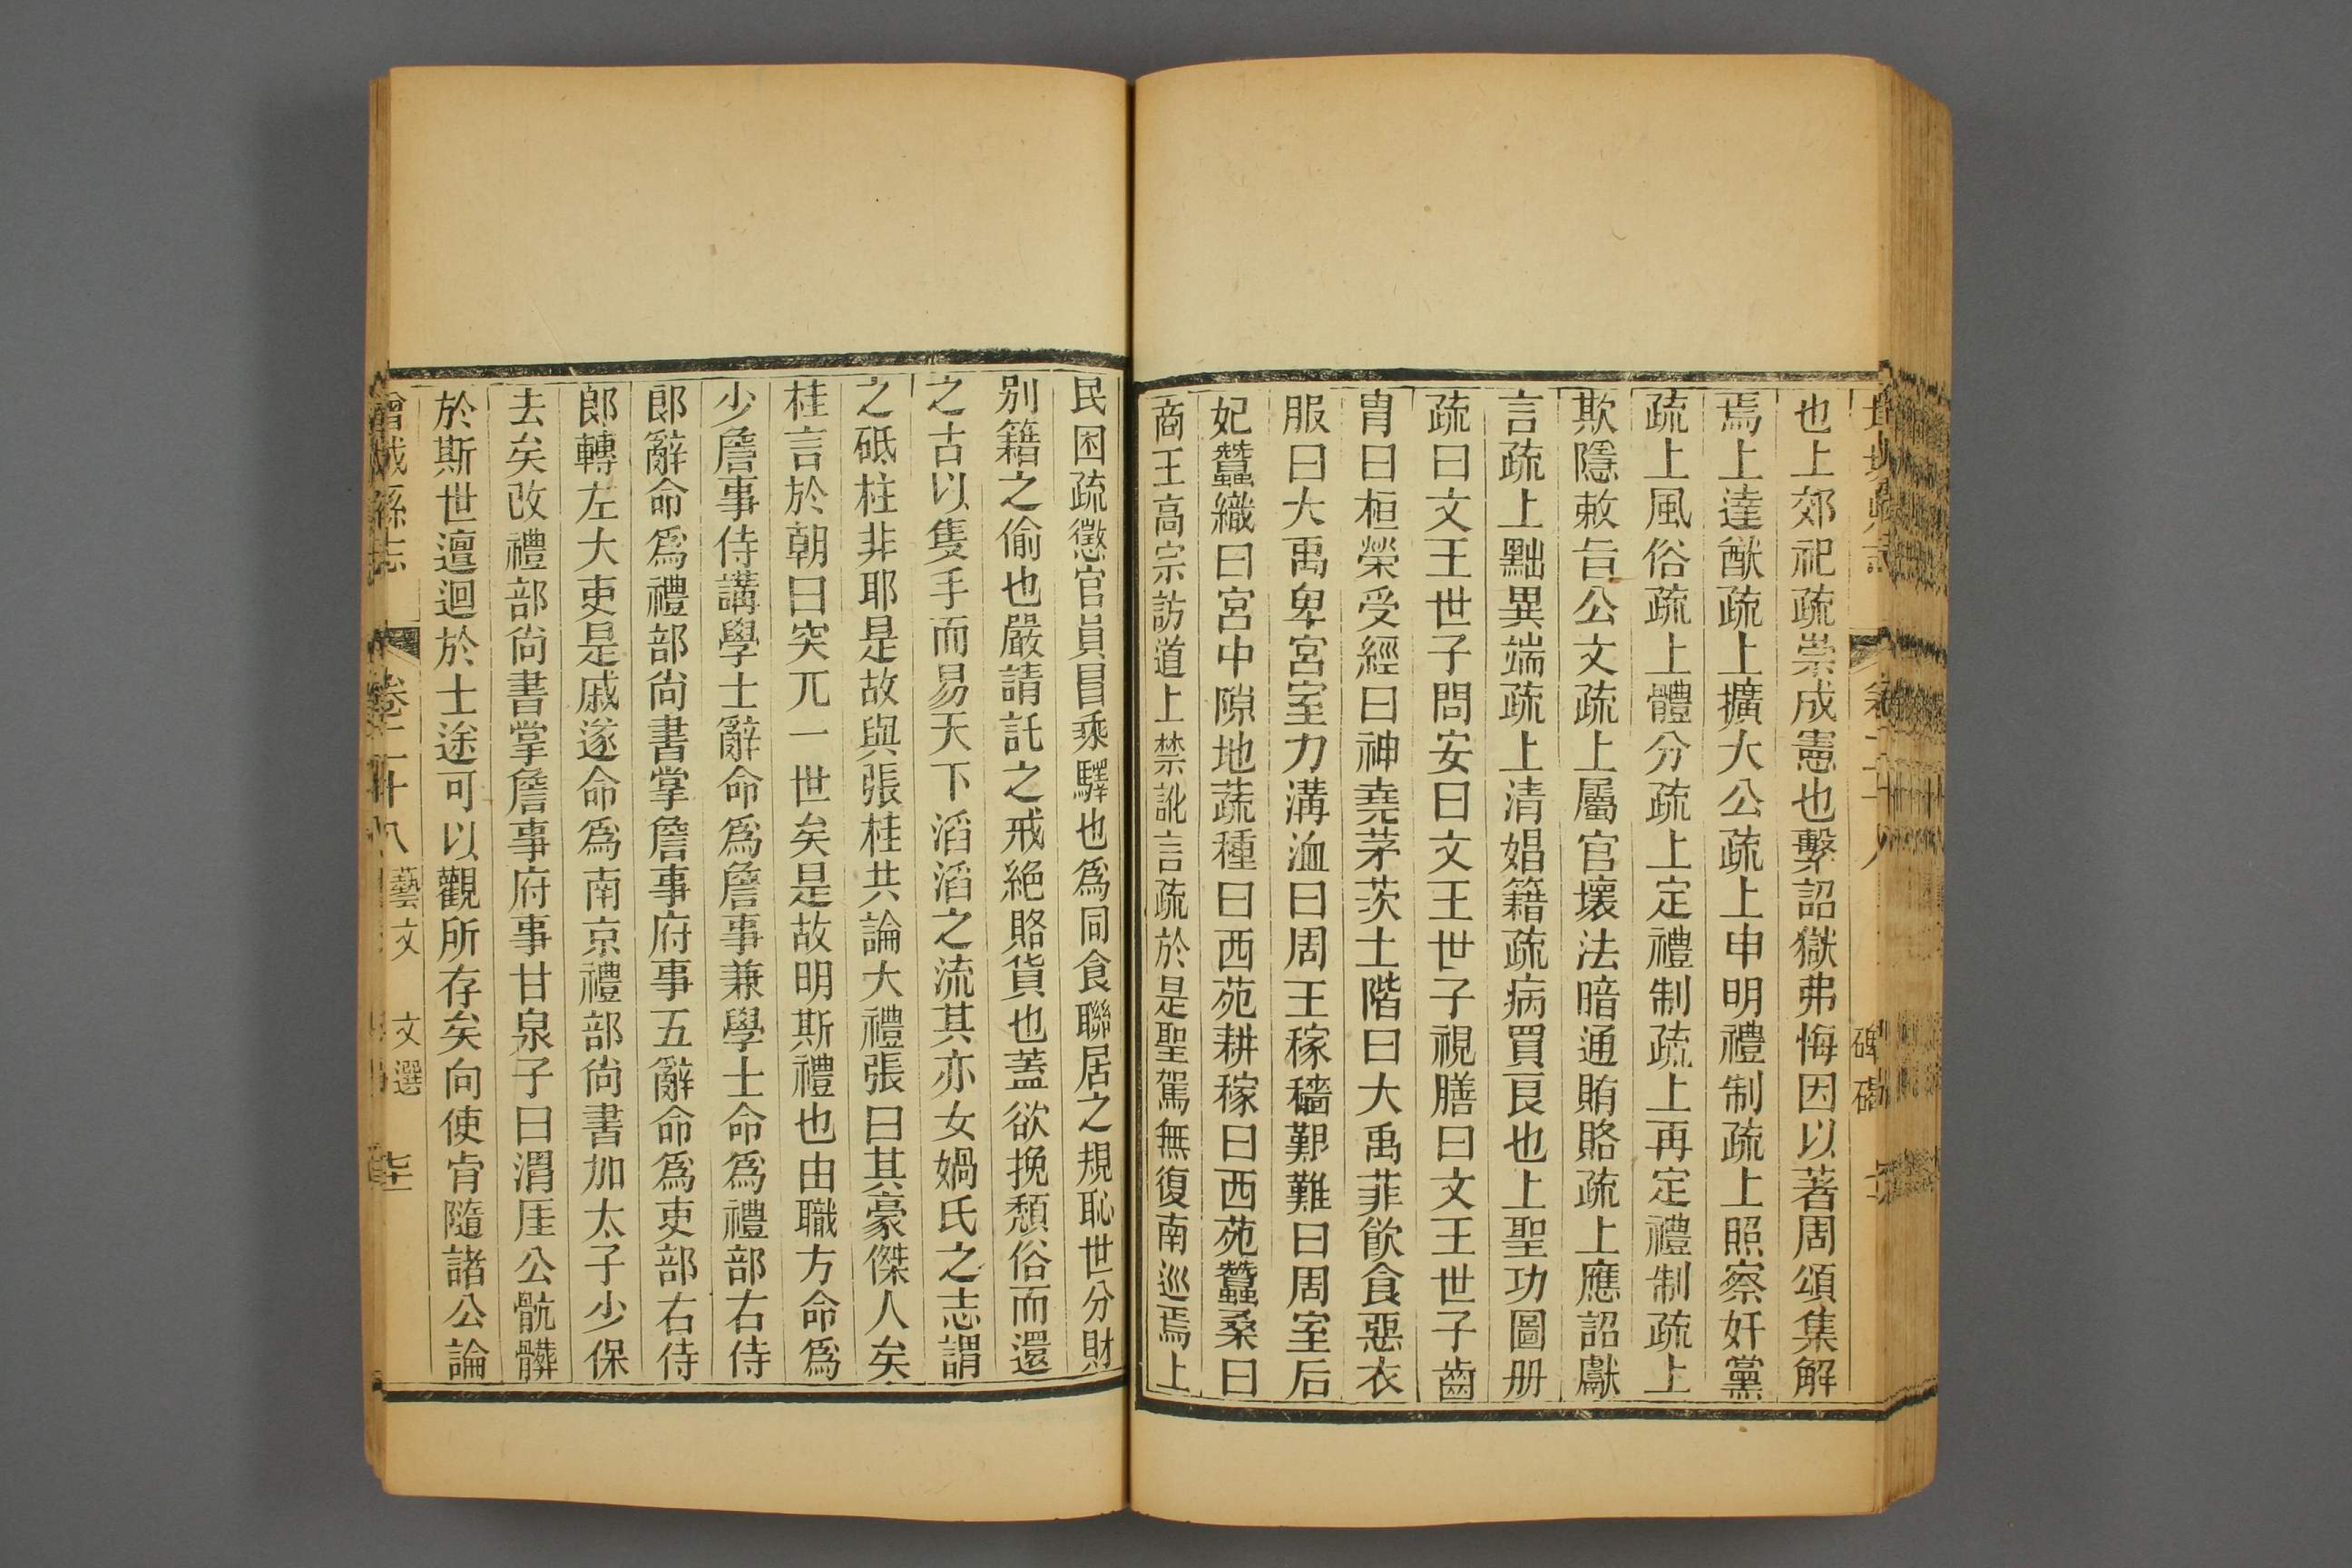 也上郊祀疏崇成憲也繫詔獄弗悔因以著周頌集解
焉上達猷疏上擴大公疏上申明禮制疏上照察奸黨
疏上風俗疏上體分疏上定禮制疏上再定禮制疏上
欺隱敕旨公文疏上屬官壞法暗通賄賂疏上應詔獻
言疏上黜異端疏上清娼籍疏病買良也上聖功圖册
疏曰文王世子問安曰文王世子視膳曰文王世子齒
胄曰桓榮受經曰神堯茅茨土階曰大禹菲飲食惡衣
服曰大禹卑宮室力溝洫曰周王稼穡艱難曰周室后
妃蠶織曰宮中隙地蔬種曰西苑耕稼曰西苑蠶桑曰
商王高宗訪道上禁訛言疏於是聖駕無復南巡焉上
民困疏懲官員冒乘驛也爲同食聯居之規恥世分財
別籍之偷也嚴請託之戒絕賂貨也蓋欲挽頹俗而還
之古以隻手而易天下滔滔之流其亦女媧氏之志謂
之砥柱非耶是故與張桂共論大禮張曰其豪傑人矣
桂言於朝曰突兀一世矣是故明斯禮也由職方命爲
少詹事侍講學士辭命爲詹事兼學士命爲禮部右侍
郎辭命爲禮部尙書掌詹事府事五辭命爲吏部右侍
郎轉左大吏是戚遂命爲南京禮部尙書加太子少保
去矣改禮部尙書掌詹事府事甘泉子曰渭厓公骯髒
於斯世邅迴於士途可以觀所存矣向使肯隨諸公論
增城縣志 卷二十八 藝文 文選